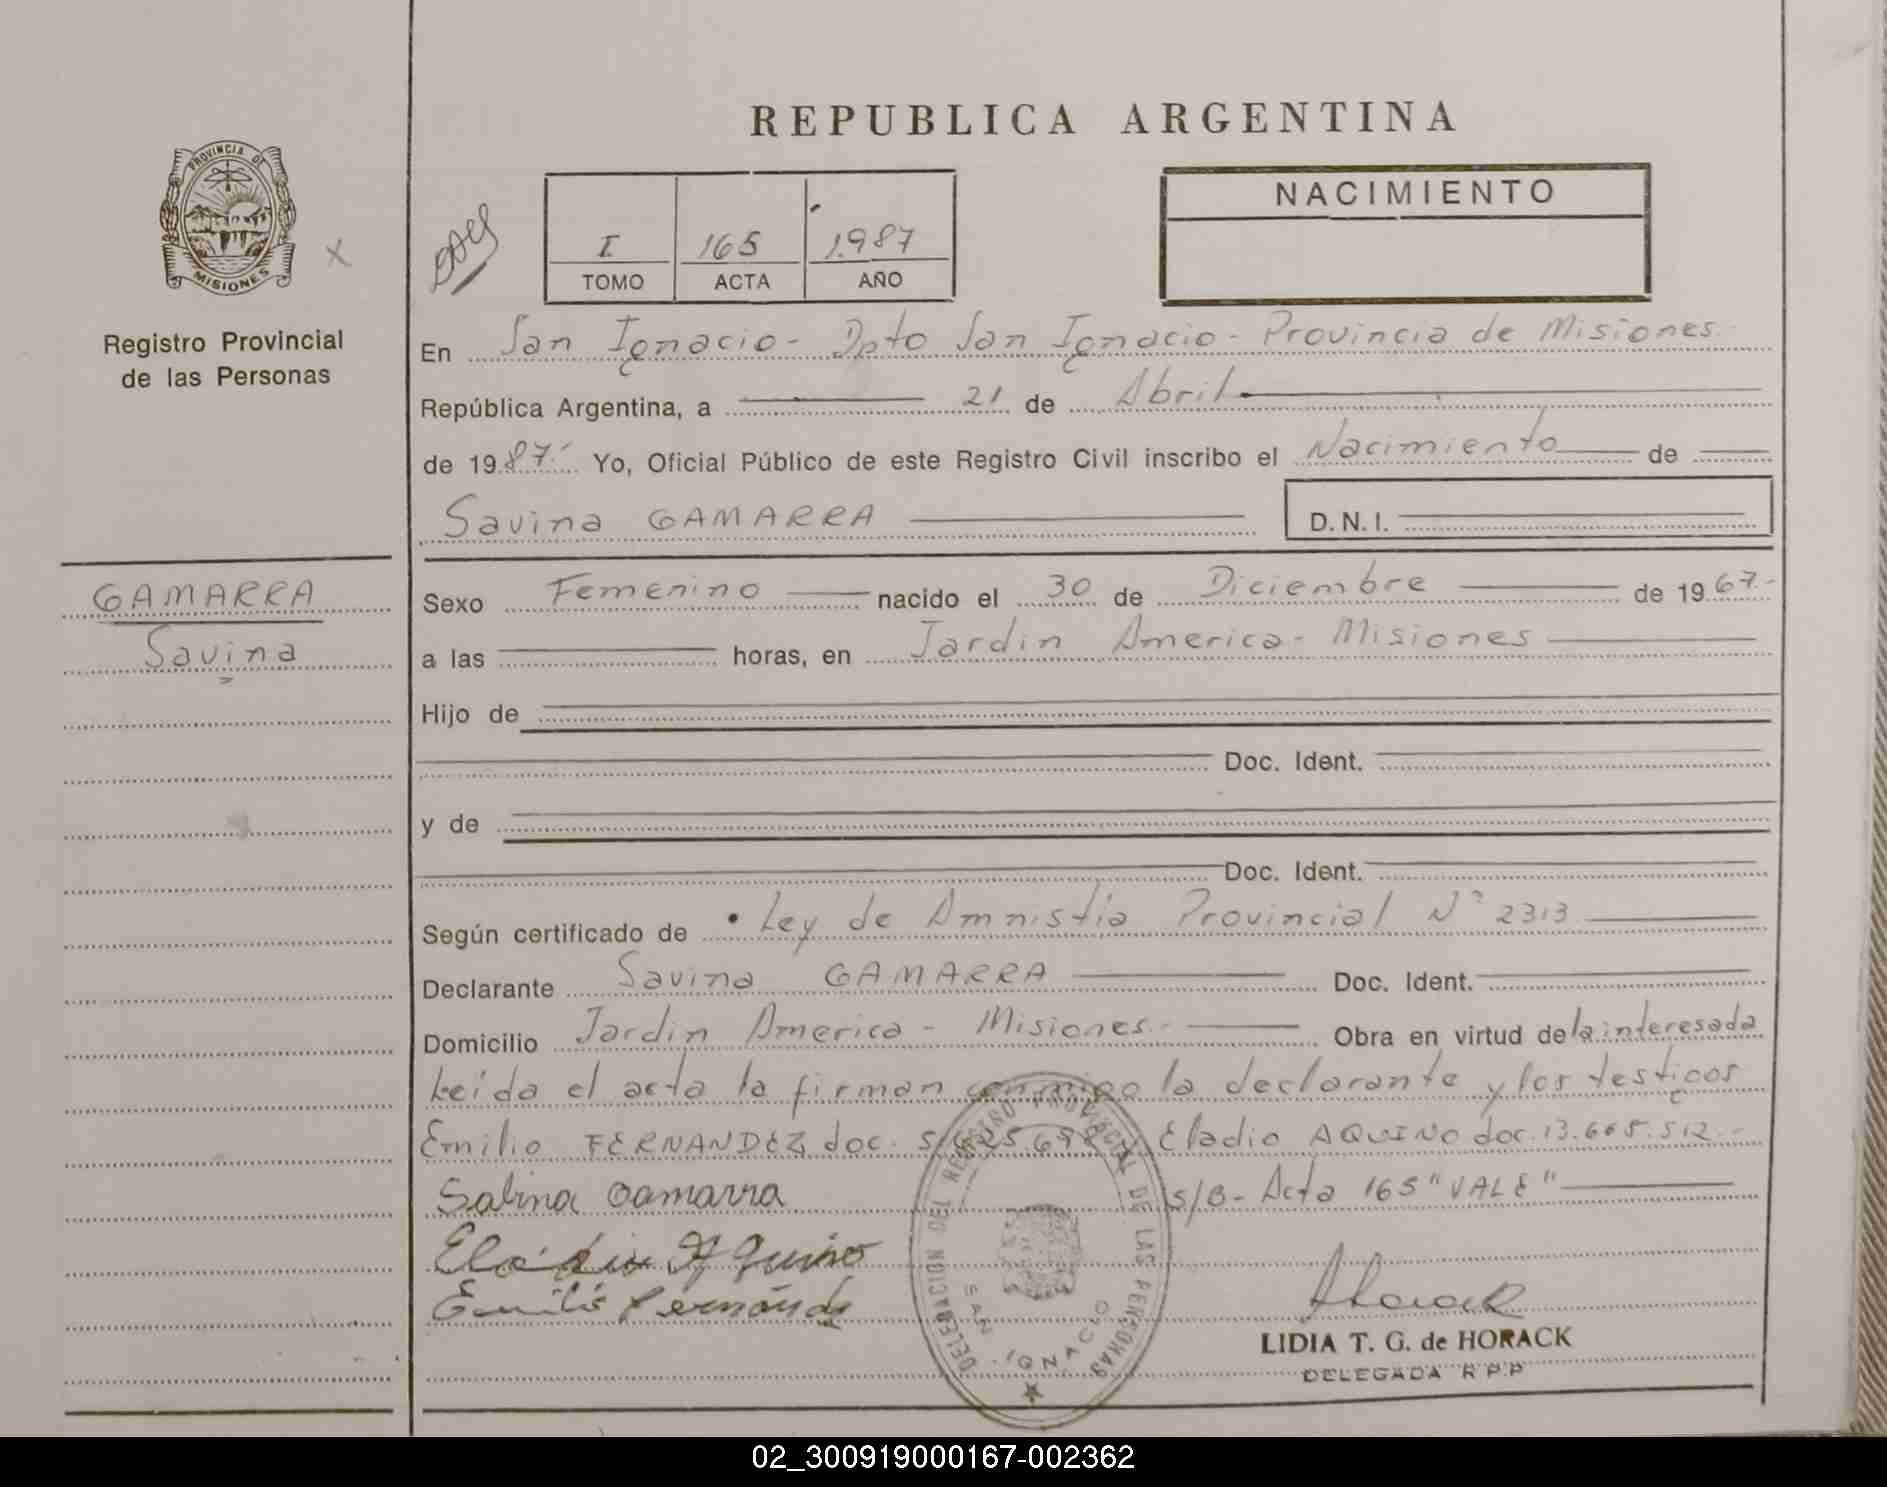 REPUBLICA ARGENTINA
PROVINCIA DE
MISIONES
Registro Provincial
de las Personas
I 165 1.987
TOMO ACTA AÑO
NACIMIENTO
En San Ignacio - Dpto San Ignacio - Provincia de Misiones
República Argentina, a 21 de Abril
de 1987 Yo, Oficial Público de este Registro Civil inscribo el Nacimiento de
Savina GAMARRA D.N.I.
GAMARRA
Savina
Sexo Femenino nacido el 30 de Diciembre de 1967.-
a las horas, en Jardin America - Misiones
Hijo de
Doc. Ident.
y de
Doc. Ident.
Según certificado de Ley de Amnistia Provincial N° 2313
Declarante Savina GAMARRA Doc. Ident.
Domicilio Jardin America - Misiones.- Obra en virtud de la interesada
Leida el acta la firman conmigo la declarante y los testigos
Emilio FERNANDEZ doc. Eladio AQUINO doc. 13.665.512.-
Sabina Gamarra S/B- Acta 165 "VALE"
Eladio Aquino
Emilio Fernández
Horack
LIDIA T. G. de HORACK
DELEGADA R P P
DELEGACION DEL REGISTRO PROVINCIAL DE LAS PERSONAS
SAN IGNACIO
02_300919000167-002362